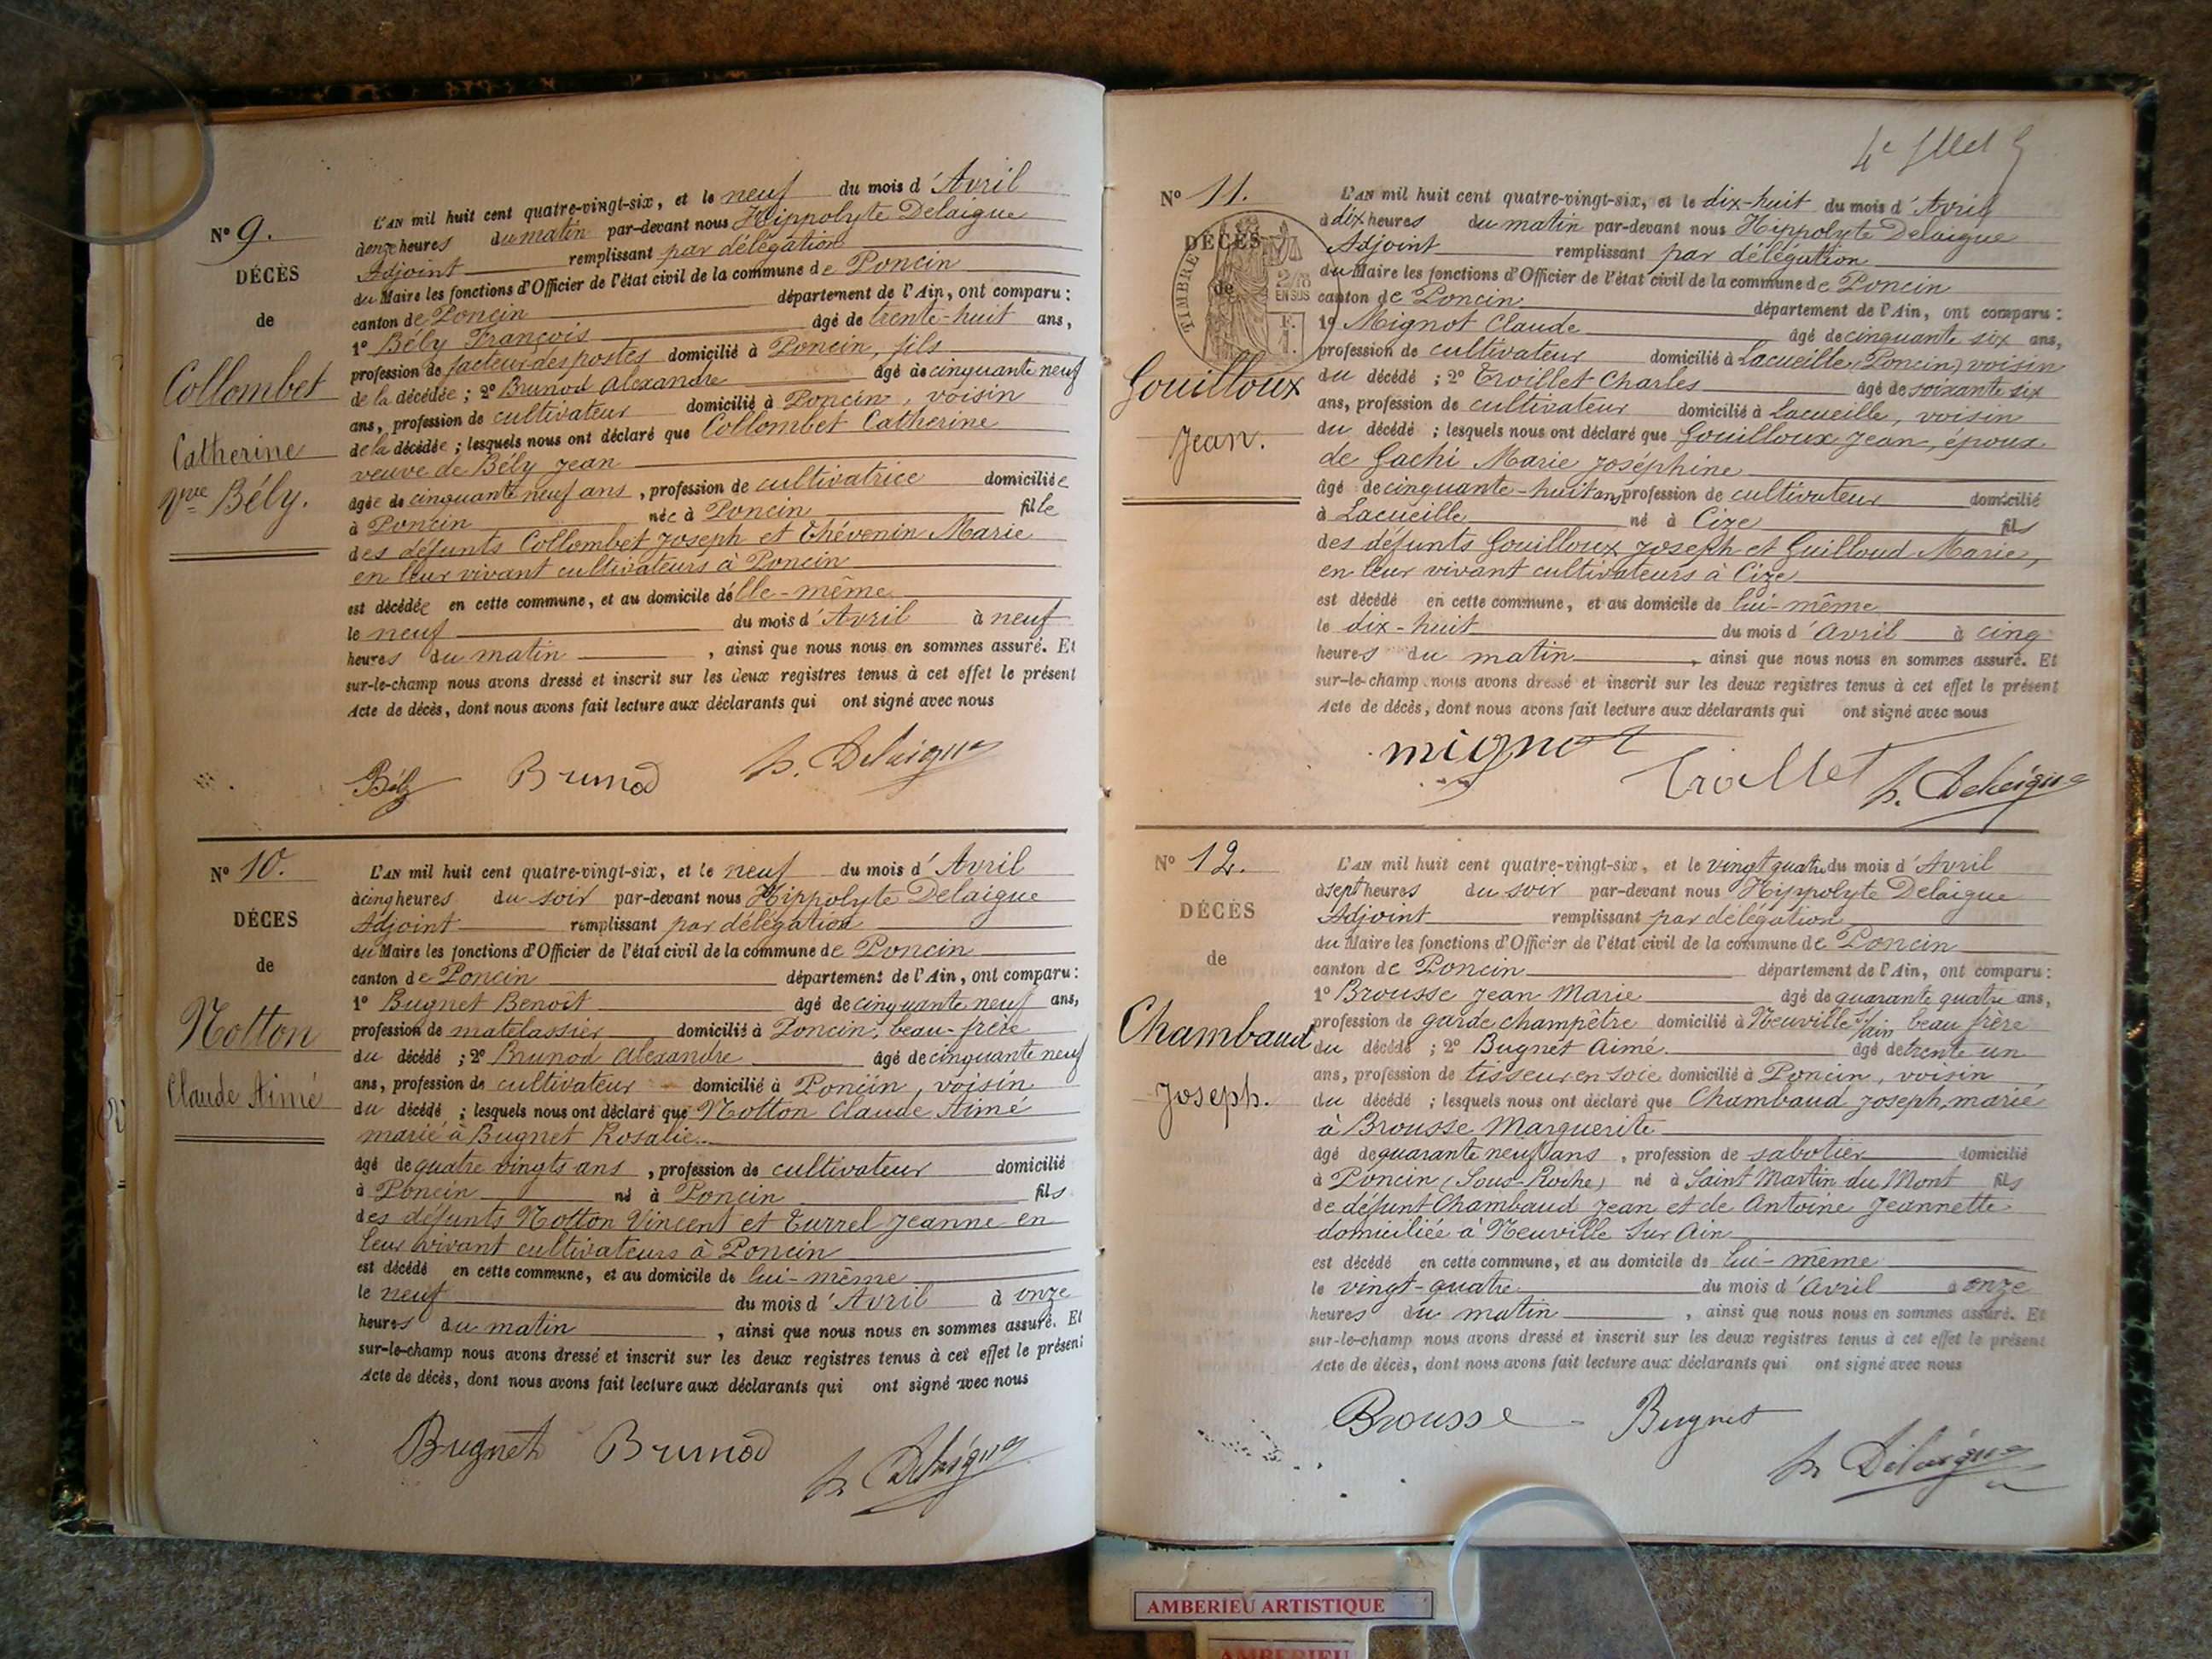 N° 9.
DÉCÈS
de
Collombet
Catherine
Vve Bély.
L'AN mil huit cent quatre-vingt-six, et le neuf du mois d'Avril
à onze heures du matin par-devant nous Hippolyte Delaigue
Adjoint remplissant par délégation
du Maire les fonctions d'Officier de l'état civil de la commune de Poncin
canton de Poncin département de l'Ain, ont comparu :
1° Bély François âgé de trente-huit ans,
profession de facteur des postes domicilié à Poncin, fils
de la décédée ; 2° Brunod Alexandre âgé de cinquante neuf
ans, profession de cultivateur domicilié à Poncin, voisin
de la décédée ; lesquels nous ont déclaré que Collombet Catherine
veuve de Bély Jean
âgée de cinquante neuf ans, profession de cultivatrice domiciliée
à Poncin née à Poncin fille
des défunts Collombet Joseph et Thévenin Marie
en leur vivant cultivateurs à Poncin
est décédée en cette commune, et au domicile d'elle-même
le neuf du mois d'Avril à neuf
heures du matin, ainsi que nous nous en sommes assuré. Et
sur-le-champ nous avons dressé et inscrit sur les deux registres tenus à cet effet le présent
Acte de décès, dont nous avons fait lecture aux déclarants qui ont signé avec nous
Bély Brunod h. Delaigue
N° 10.
DÉCES
de
Notton
Claude Aimé
L'AN mil huit cent quatre-vingt-six, et le neuf du mois d'Avril
à cinq heures du soir par-devant nous Hippolyte Delaigue
Adjoint remplissant par délégation
du Maire les fonctions d'Officier de l'état civil de la commune de Poncin
canton de Poncin département de l'Ain, ont comparu :
1° Bugnet Benoît âgé de cinquante neuf ans,
profession de matelassier domicilié à Poncin, beau-frère
du décédé ; 2° Brunod Alexandre âgé de cinquante neuf
ans, profession de cultivateur domicilié à Poncin, voisin
du décédé ; lesquels nous ont déclaré que Notton Claude Aimé
marié à Bugnet Rosalie
âgé de quatre vingts ans, profession de cultivateur domicilié
à Poncin né à Poncin fils
des défunts Notton Vincent et Turrel Jeanne en
leur vivant cultivateurs à Poncin
est décédé en cette commune, et au domicile de lui-même
le neuf du mois d'Avril à onze
heures du matin, ainsi que nous nous en sommes assuré. Et
sur-le-champ nous avons dressé et inscrit sur les deux registres tenus à cet effet le présent
Acte de décès, dont nous avons fait lecture aux déclarants qui ont signé avec nous
Bugnet Brunod h Delaigue
4e
N° 11.
DÉCÈS
de
TIMBRE
2/10
EN SUS
Gouilloux
Jean.
L'AN mil huit cent quatre-vingt-six, et le dix-huit du mois d'Avril
à dix heures du matin par-devant nous Hippolyte Delaigue
Adjoint remplissant par délégation
du Maire les fonctions d'Officier de l'état civil de la commune de Poncin
canton de Poncin département de l'Ain, ont comparu :
1° Mignot Claude âgé de cinquante six ans,
profession de cultivateur domicilié à Lacueille (Poncin) voisin
du décédé ; 2° Troillet Charles âgé de soixante six
ans, profession de cultivateur domicilié à Lacueille, voisin
du décédé ; lesquels nous ont déclaré que Gouilloux Jean, époux
de Gachi Marie Joséphine
âgé de cinquante-huit ans, profession de cultivateur domicilié
à Lacueille né à Cize fils
des défunts Gouilloux Joseph et Guilloud Marie,
en leur vivant cultivateurs à Cize
est décédé en cette commune, et au domicile de lui-même
le dix-huit du mois d'Avril à cinq
heures du matin, ainsi que nous nous en sommes assuré. Et
sur-le-champ nous avons dressé et inscrit sur les deux registres tenus à cet effet le présent
Acte de décès, dont nous avons fait lecture aux déclarants qui ont signé avec nous
mignot Troillet h. Delaigue
N° 12.
DÉCÈS
de
Chambaud
Joseph.
L'AN mil huit cent quatre-vingt-six, et le vingt quatre du mois d'Avril
à sept heures du soir par-devant nous Hippolyte Delaigue
Adjoint remplissant par délégation
du Maire les fonctions d'Officier de l'état civil de la commune de Poncin
canton de Poncin département de l'Ain, ont comparu :
1° Brousse Jean Marie âgé de quarante quatre ans,
profession de garde champêtre domicilié à Neuville s/ Ain beau frère
du décédé ; 2° Bugnet Aimé âgé de trente un
ans, profession de tisseur en soie domicilié à Poncin, voisin
du décédé ; lesquels nous ont déclaré que Chambaud Joseph, marié
à Brousse Marguerite
âgé de quarante neuf ans, profession de sabotier domicilié
à Poncin (Sous-Roche) né à Saint Martin du Mont fils
de défunt Chambaud Jean et de Antoine Jeannette
domiciliée à Neuville sur Ain
est décédé en cette commune, et au domicile de lui-même
le vingt-quatre du mois d'Avril à onze
heures du matin, ainsi que nous nous en sommes assuré. Et
sur-le-champ nous avons dressé et inscrit sur les deux registres tenus à cet effet le présent
Acte de décès, dont nous avons fait lecture aux déclarants qui ont signé avec nous
Brousse Bugnet h Delaigue
AMBERIEU ARTISTIQUE
AMBERIEU